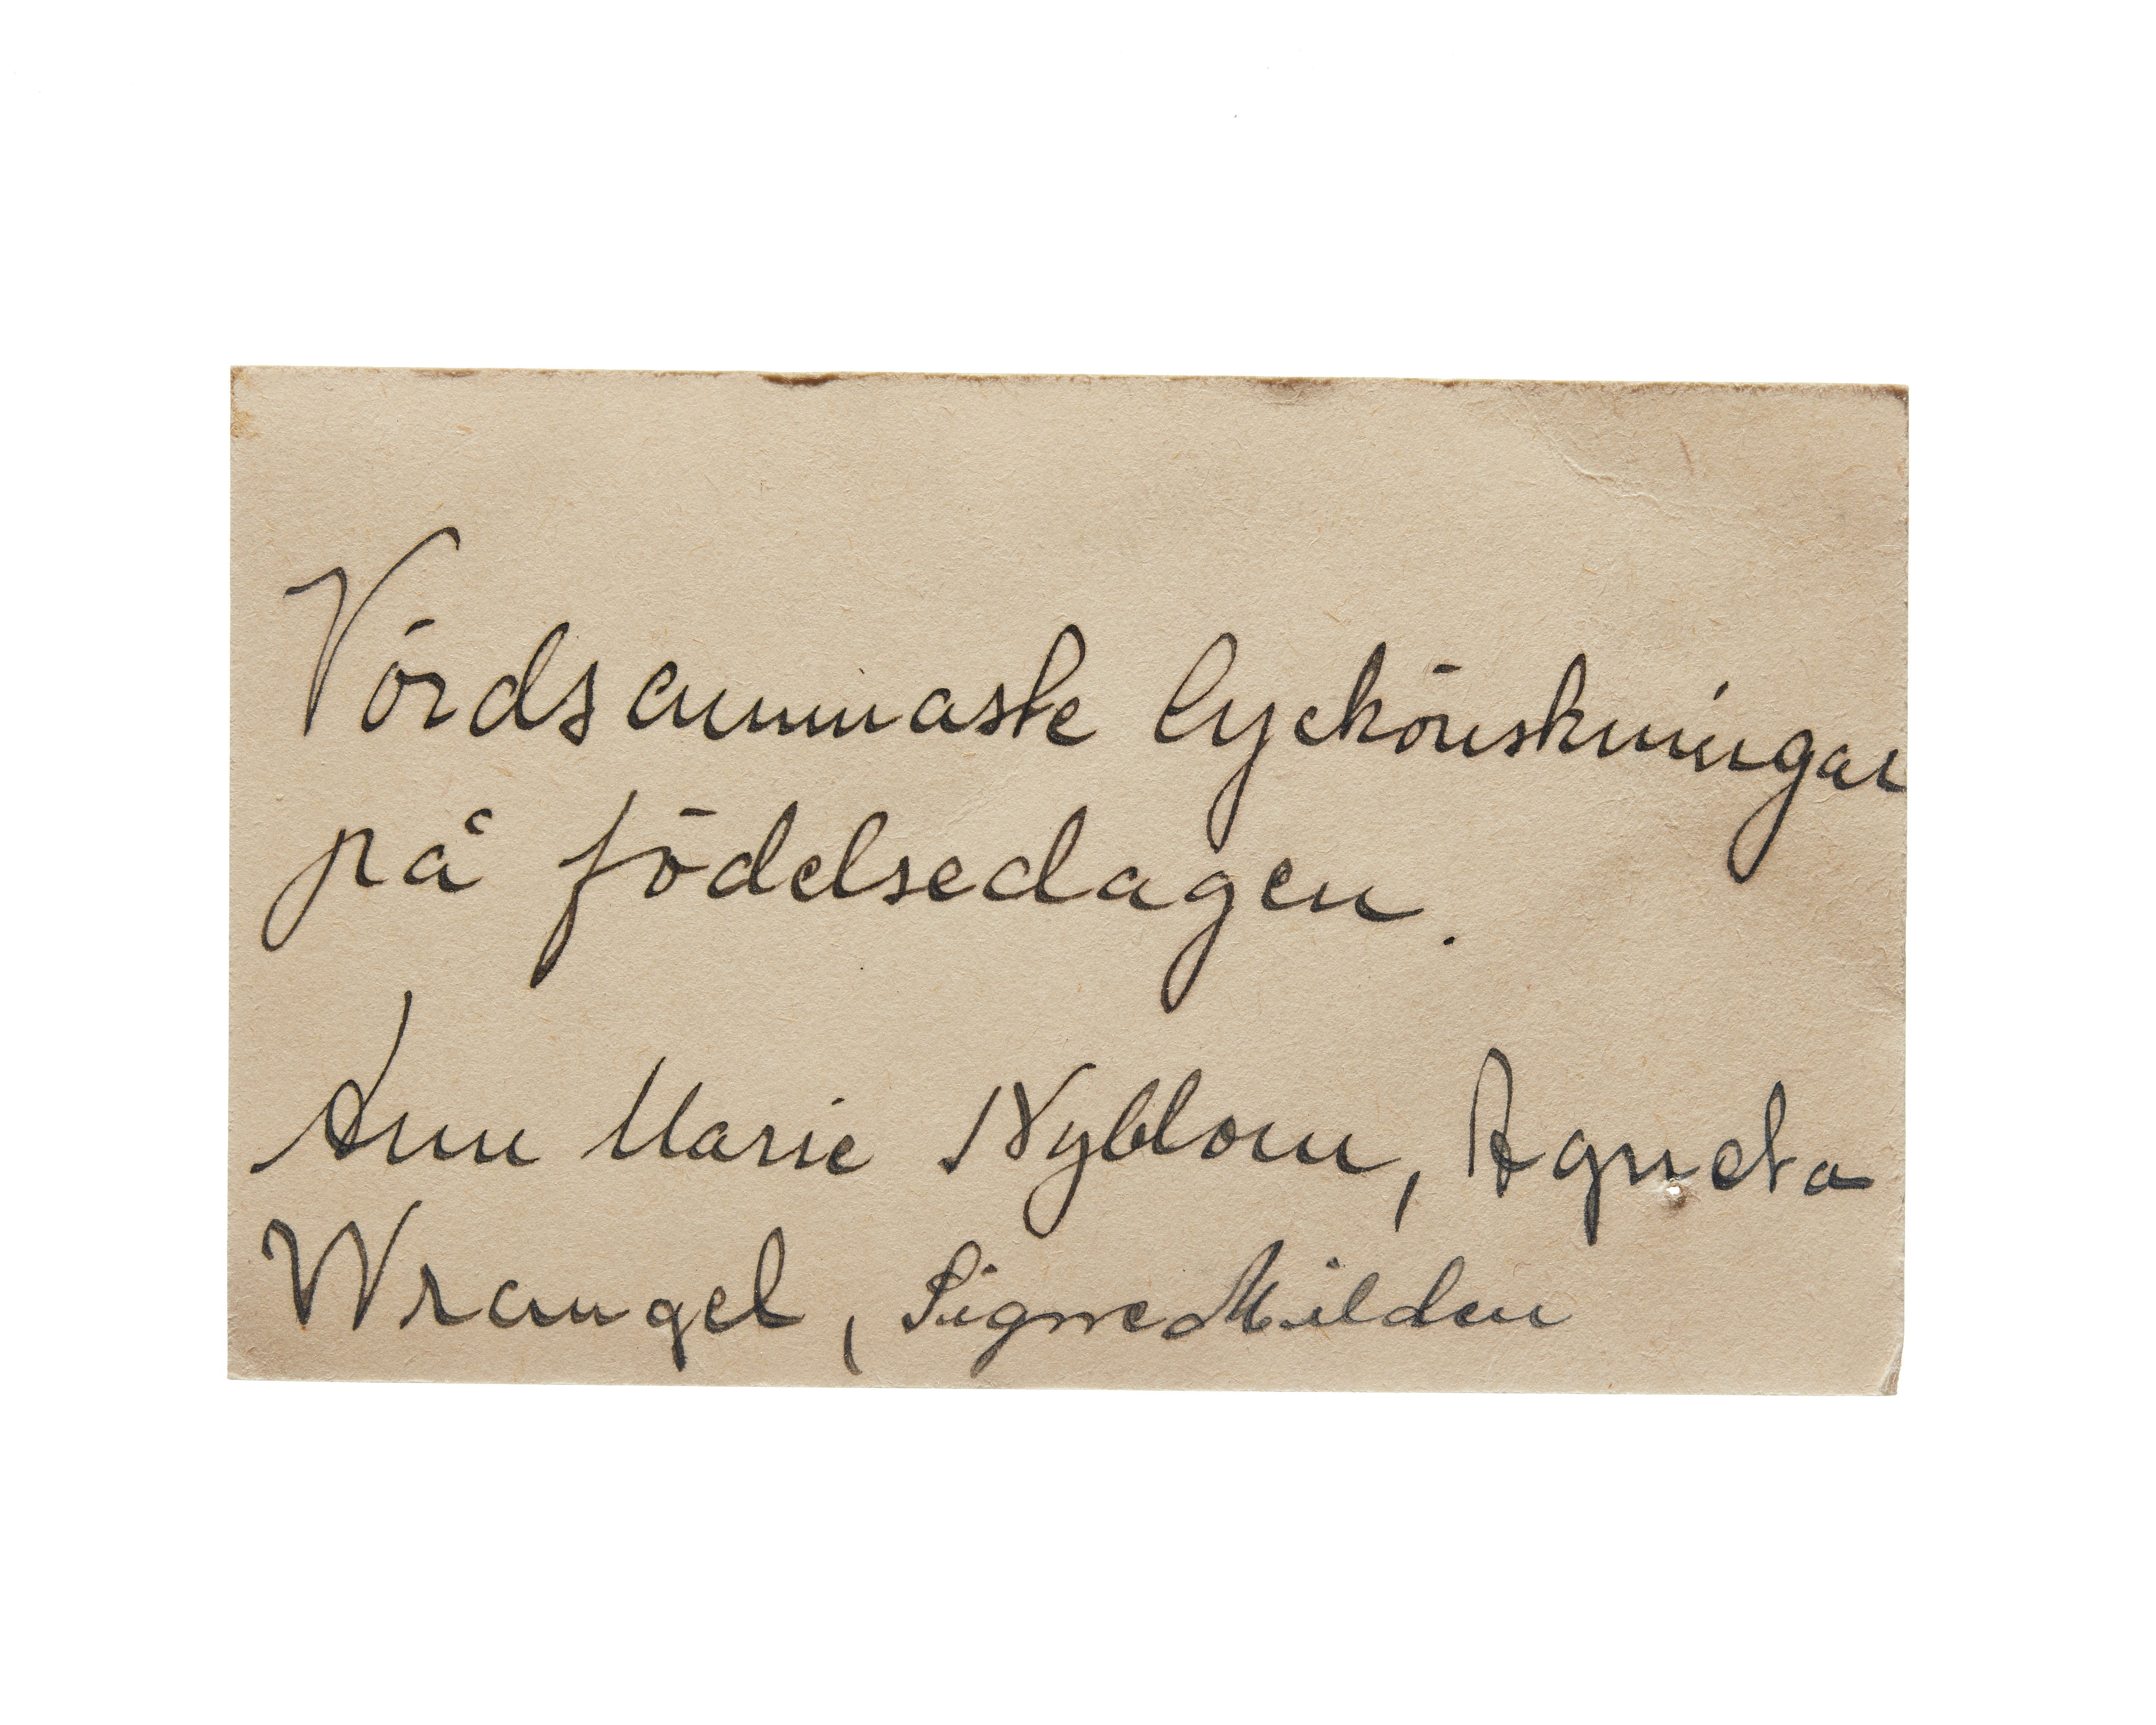 Vördsammaste lyckönskningar
på födelsedagen.
Ann Marie Nyblom, Agneta
Wrangel, Signe Milden